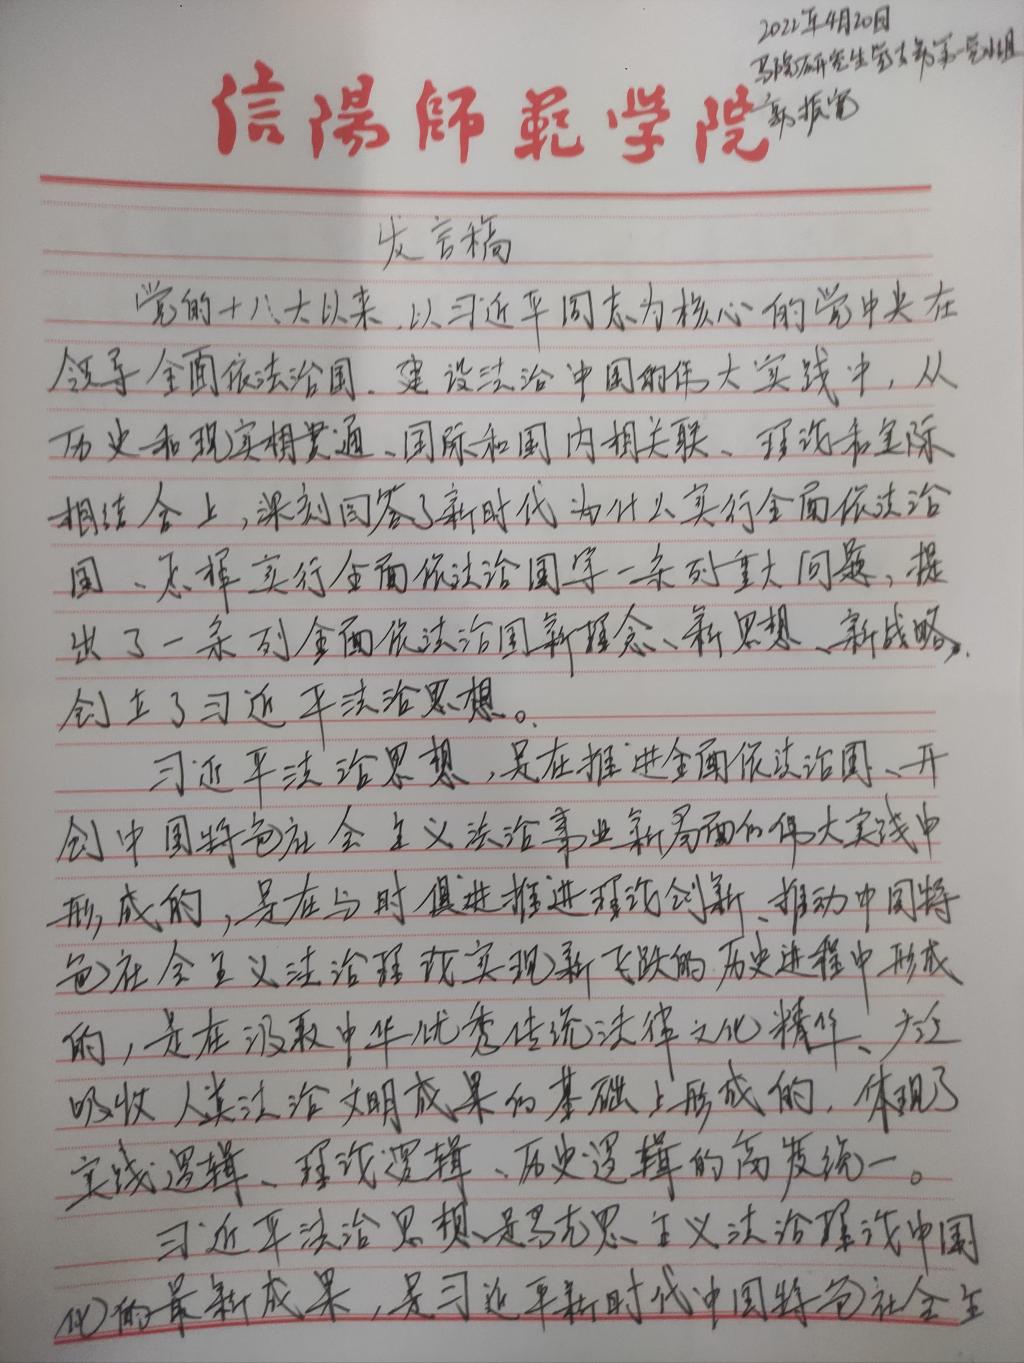 2022年4月20日
马院研究生党支部第一党小组
郭振宽
信陽師範学院
发言稿
党的十八大以来,以习近平同志为核心的党中央在
领导全面依法治国、建设法治中国的伟大实践中,从
历史和现实相贯通、国际和国内相关联、理论和实际
相结合上,深刻回答了新时代为什么实行全面依法治
国、怎样实行全面依法治国等一系列重大问题,提
出了一系列全面依法治国新理念、新思想、新战略,
创立了习近平法治思想。
习近平法治思想,是在推进全面依法治国、开
创中国特色社会主义法治事业新局面的伟大实践中
形成的,是在与时俱进推进理论创新、推动中国特
色社会主义法治理论实现新飞跃的历史进程中形成
的,是在汲取中华优秀传统法律文化精华、广泛
吸收人类法治文明成果的基础上形成的,体现了
实践逻辑、理论逻辑、历史逻辑的高度统一。
习近平法治思想,是马克思主义法治理论中国
化的最新成果,是习近平新时代中国特色社会主